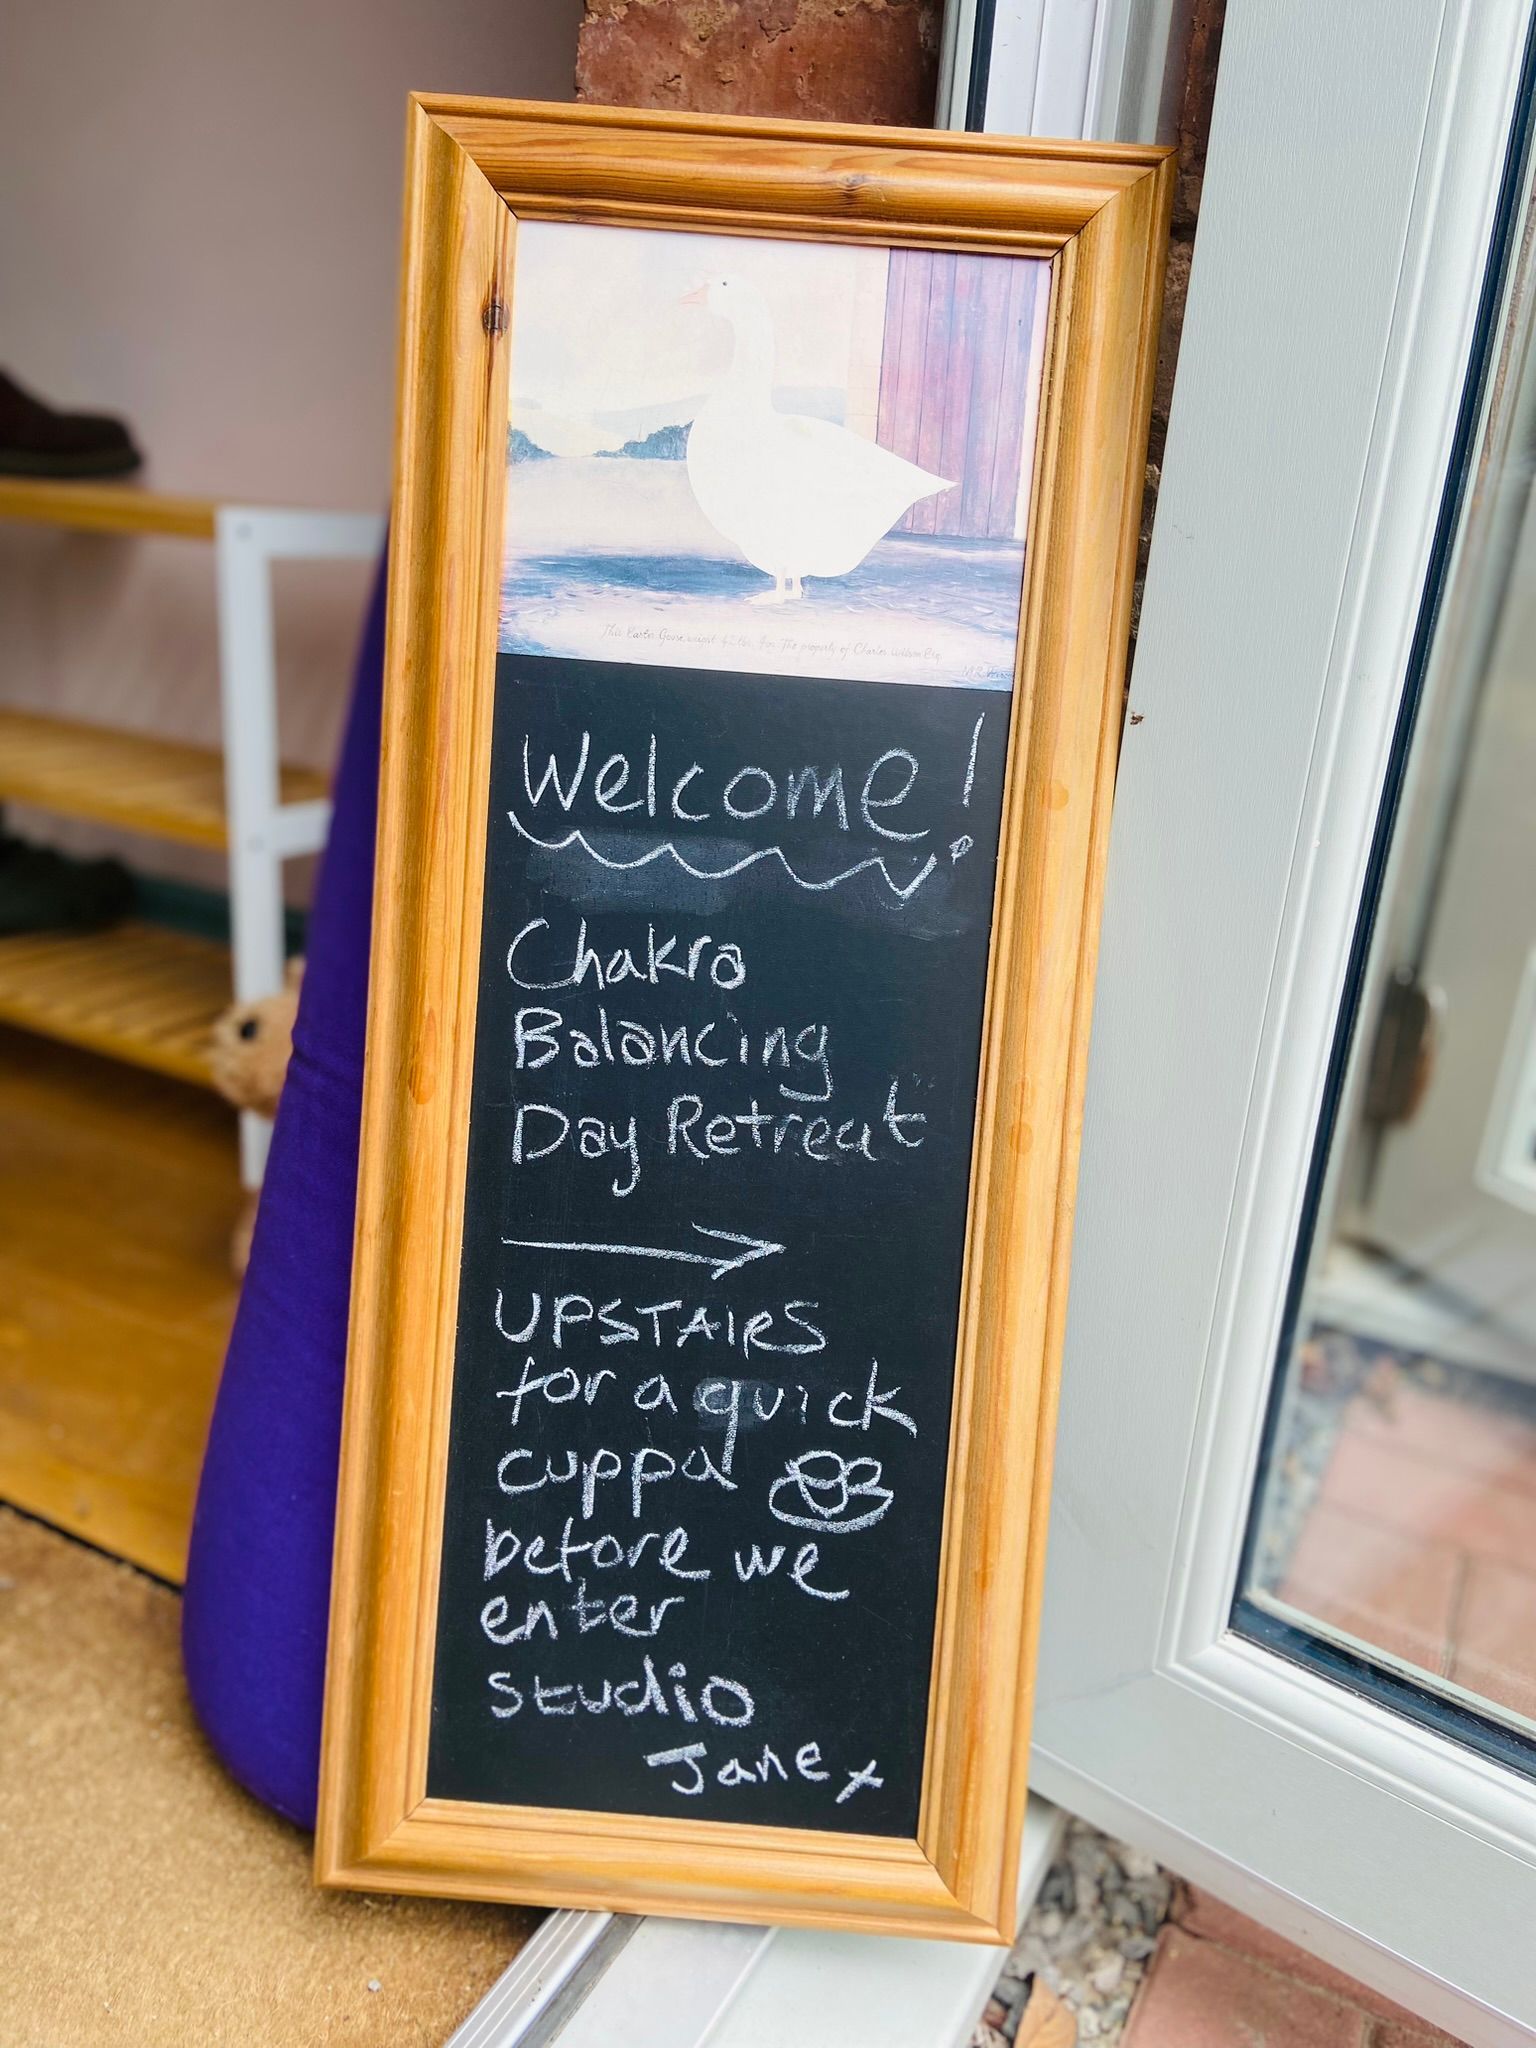 This Easter Goose, weight 42 lbs. 4oz. The property of Charles Wilson Esq.
Welcome!
Chakra
Balancing
Day Retreat
UPSTAIRS
for a quick
cuppa
before we
enter
studio
Jane x